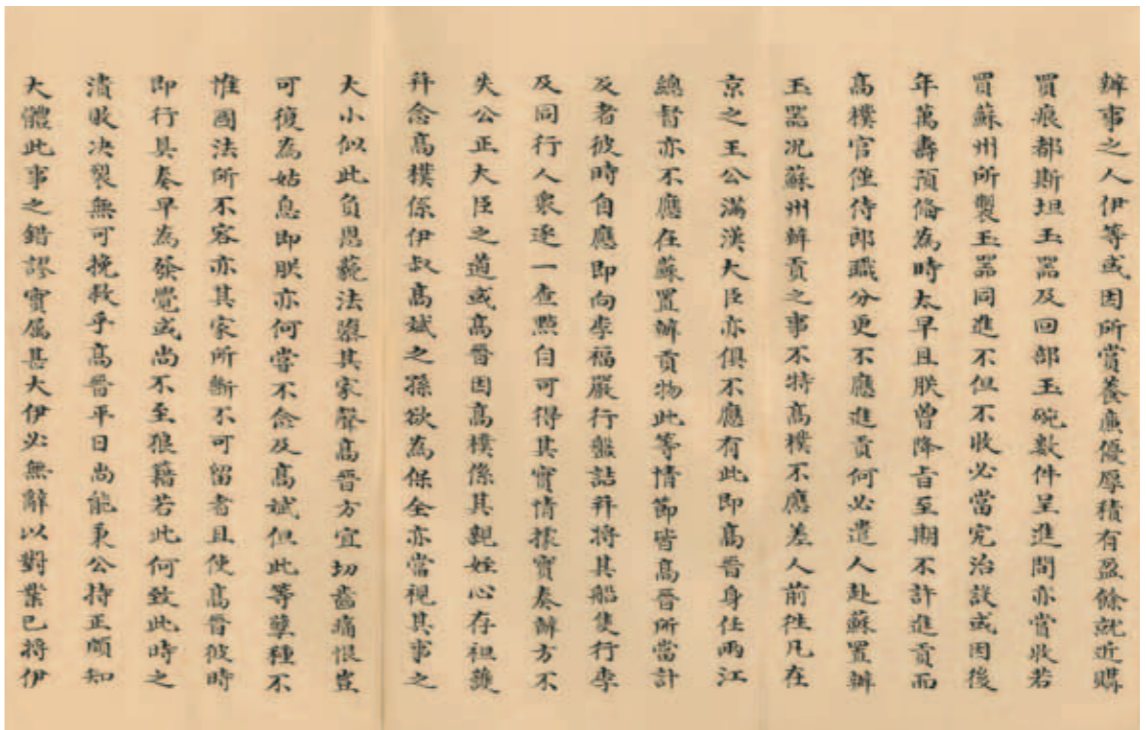 辦事之人伊等或因所賞養廉優厚積有盈餘就近購
買痕都斯坦玉器及回部玉碗數件呈進間亦賞收若
買蘇州所製玉器同進不但不收必當究治設或因後
年萬壽預備為時太早且朕曾降旨至期不許進貢而
高樸官僅侍郎職分更不應進貢何必遣人赴蘇置辦
玉器況蘇州辦貢之事不特高樸不應差人前往凡在
京之王公滿漢大臣亦俱不應有此即高晉身任兩江
總督亦不應在蘇置辦貢物此等情節皆高晉所當計
及者彼時自應即向李福嚴行盤詰并將其船隻行李
及同行人衆逐一查點自可得其實情據實奏辦方不
失公正大臣之道或高晉因高樸係其親姪心存袒護
并念高樸係伊叔高斌之孫欲為保全亦當視其事之
大小似此負恩藐法隳其家聲高晉方宜切齒痛恨豈
可復為姑息即朕亦何嘗不念及高斌但此等孽種不
惟國法所不容亦其家所斷不可留者且使高晉彼時
即行具奏早為發覺或尚不至狼藉若此何致此時之
潰敗決裂無可挽救乎高晉平日尚能秉公持正頗知
大體此事之錯謬實屬甚大伊必無辭以對業已將伊